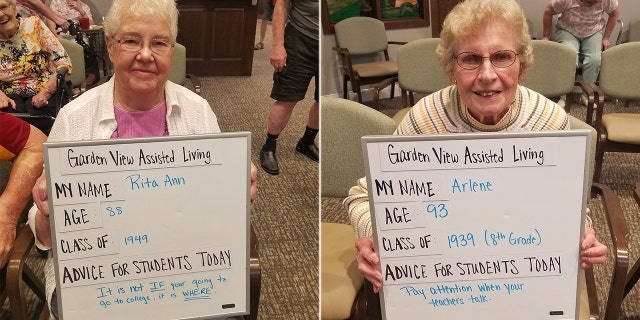 Garden View Assisted Living
MY NAME Rita Ann
AGE 88
CLASS OF 1949
ADVICE FOR STUDENTS TODAY
It is not IF your going to
go to college, it is WHERE!
Garden View Assisted Living
MY NAME Arlene
AGE 93
CLASS OF 1939 (8th Grade)
ADVICE FOR STUDENTS TODAY
Pay attention when your
teachers talk.